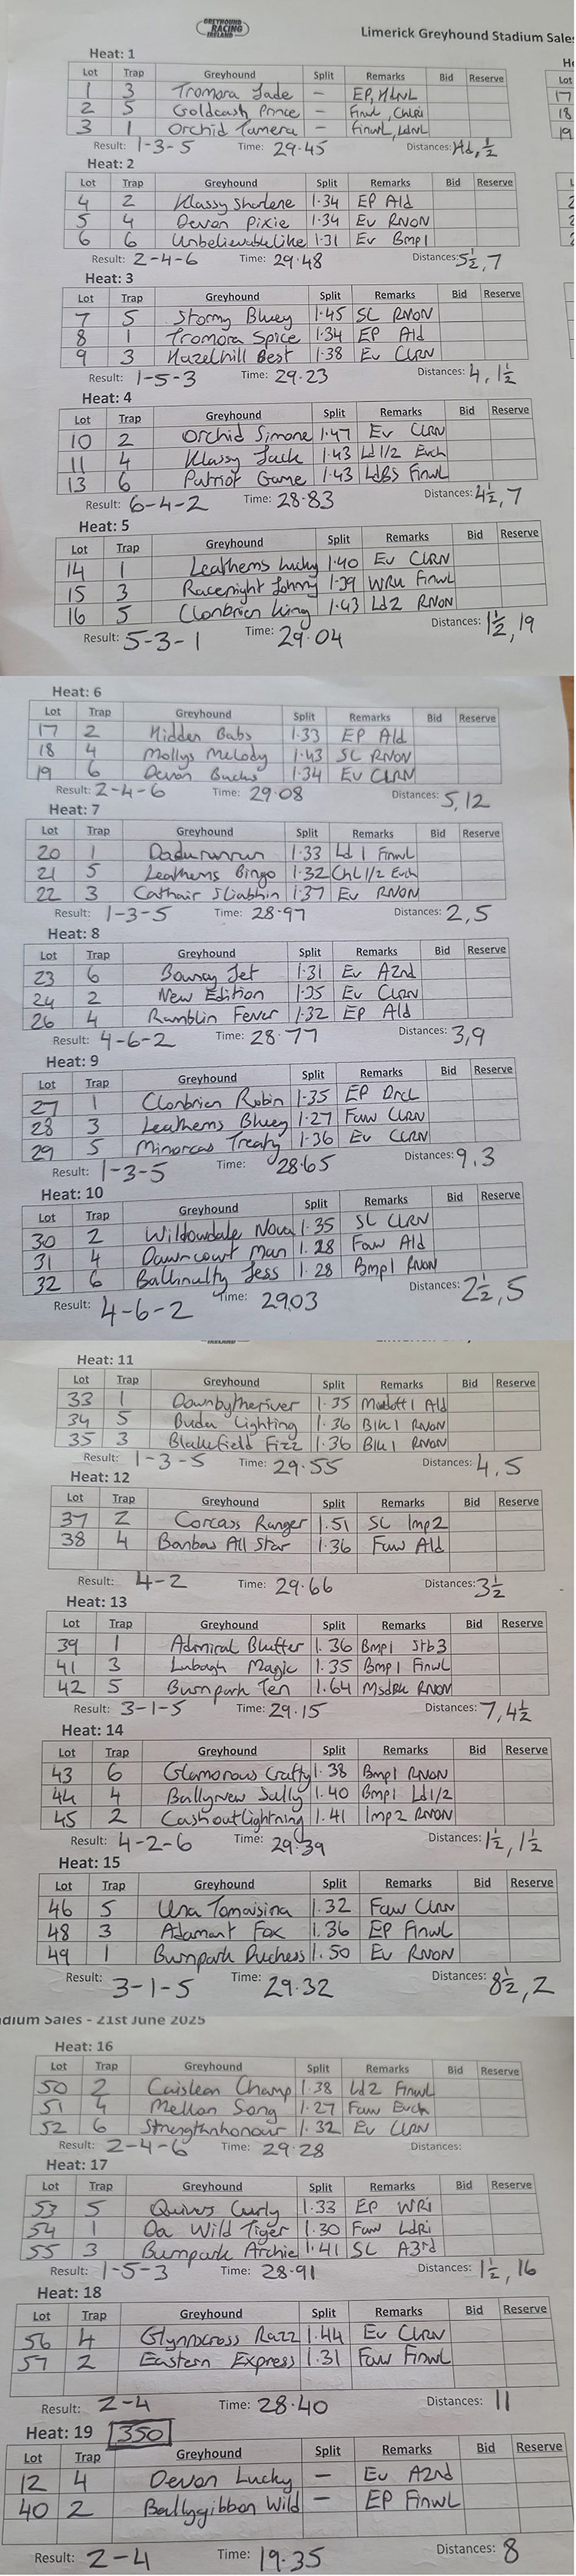 GREYHOUND RACING IRELAND
Limerick Greyhound Stadium Sales
Heat: 1
Lot Trap Greyhound Split Remarks Bid Reserve
1 3 Tromora Jade - EP, HLNL
2 5 Goldcash Prince - Finwl, ChLRi
3 1 Orchid Tamera - FinwL, LdNL
Result: 1-3-5 Time: 29.45 Distances: Hd, ½
Heat: 2
Lot Trap Greyhound Split Remarks Bid Reserve
4 2 Klassy Sharlene 1.34 EP Ald
5 4 Devon Pixie 1.34 Ev RNON
6 6 Unbelievablelike 1.31 Ev Bmp1
Result: 2-4-6 Time: 29.48 Distances: 5½, 7
Heat: 3
Lot Trap Greyhound Split Remarks Bid Reserve
7 5 Stormy Bluey 1.45 SC RNON
8 1 Tromora Spice 1.34 EP Ald
9 3 Hazelhill Best 1.38 Ev CLRN
Result: 1-5-3 Time: 29.23 Distances: 4, 1½
Heat: 4
Lot Trap Greyhound Split Remarks Bid Reserve
10 2 Orchid Simone 1.47 Ev CLRN
11 4 Klassy Jack 1.43 Ld1/2 Evch
13 6 Patriot Game 1.43 LdBS FinwL
Result: 6-4-2 Time: 28.83 Distances: 4½, 7
Heat: 5
Lot Trap Greyhound Split Remarks Bid Reserve
14 1 Leathems Lucky 1.40 Ev CLRN
15 3 Racenight Johnny 1.39 WRU FinwL
16 5 Clonbrien King 1.43 Ld2 RNON
Result: 5-3-1 Time: 29.04 Distances: 1½, 19
Heat: 6
Lot Trap Greyhound Split Remarks Bid Reserve
17 2 Hidden Babs 1.33 EP Ald
18 4 Mollys Melody 1.43 SC RNON
19 6 Devon Bucks 1.34 Ev CLRN
Result: 2-4-6 Time: 29.08 Distances: 5, 12
Heat: 7
Lot Trap Greyhound Split Remarks Bid Reserve
20 1 Dadurunrun 1.33 Ld 1 Finwl
21 5 Leathems Bingo 1.32 ChL1/2 Evch
22 3 Cathair Sliabhin 1.37 Ev RNON
Result: 1-3-5 Time: 28.97 Distances: 2, 5
Heat: 8
Lot Trap Greyhound Split Remarks Bid Reserve
23 6 Bowsay Jet 1.31 Ev A2nd
24 2 New Edition 1.35 Ev CLRN
26 4 Ramblin Fever 1.32 EP Ald
Result: 4-6-2 Time: 28.77 Distances: 3, 9
Heat: 9
Lot Trap Greyhound Split Remarks Bid Reserve
27 1 Clonbrien Robin 1.35 EP DrcL
28 3 Leathems Bluey 1.27 Faw CLRN
29 5 Minorcas Treaty 1.36 Ev CLRN
Result: 1-3-5 Time: 28.65 Distances: 9, 3
Heat: 10
Lot Trap Greyhound Split Remarks Bid Reserve
30 2 Wildowdale Nova 1.35 SC CLRN
31 4 Dawncourt Man 1.28 Faw Ald
32 6 Ballinulty Jess 1.28 Bmp1 RNON
Result: 4-6-2 Time: 29.03 Distances: 2½, 5
Heat: 11
Lot Trap Greyhound Split Remarks Bid Reserve
33 1 Downbytheriver 1.35 Ald
34 5 Buda Lighting 1.36 Blk1 RNON
35 3 Blakefield Fizz 1.36 Blk1 RNON
Result: 1-3-5 Time: 29.55 Distances: 4, 5
Heat: 12
Lot Trap Greyhound Split Remarks Bid Reserve
37 2 Corcass Ranger 1.51 SC Imp2
38 4 Banbas All Star 1.36 Faw Ald
Result: 4-2 Time: 29.66 Distances: 3½
Heat: 13
Lot Trap Greyhound Split Remarks Bid Reserve
39 1 Admiral Bluffer 1.36 Bmp1 Stb3
41 3 Labagh Magic 1.35 Bmp1 FinwL
42 5 Burnpark Ten 1.64 MsdBk RNON
Result: 3-1-5 Time: 29.15 Distances: 7, 4½
Heat: 14
Lot Trap Greyhound Split Remarks Bid Reserve
43 6 Glamorous Crafty 1.38 Bmp1 RNON
44 4 Ballynew Sally 1.40 Bmp1 Ld1/2
45 2 CashoutLightning 1.41 Imp2 RNON
Result: 4-2-6 Time: 29.39 Distances: 1½, 1½
Heat: 15
Lot Trap Greyhound Split Remarks Bid Reserve
46 5 Una Tomaisina 1.32 Faw CLRN
48 3 Adamant Fox 1.36 EP FinwL
49 1 Burnpark Duchess 1.50 Ev RNON
Result: 3-1-5 Time: 29.32 Distances: 8½, 2
dium Sales - 21st June 2025
Heat: 16
Lot Trap Greyhound Split Remarks Bid Reserve
50 2 Caislean Champ 1.38 Ld2 FinwL
51 4 Mellon Song 1.27 Faw Evch
52 6 Strengthnhonour 1.32 Ev CLRN
Result: 2-4-6 Time: 29.28 Distances:
Heat: 17
Lot Trap Greyhound Split Remarks Bid Reserve
53 5 Quives Curly 1.33 EP WRi
54 1 Da Wild Tiger 1.30 Faw LdRi
55 3 Burnpark Archie 1.41 SC A3rd
Result: 1-5-3 Time: 28.91 Distances: 1½, 16
Heat: 18
Lot Trap Greyhound Split Remarks Bid Reserve
56 4 Glynncross Razz 1.44 Ev CLRN
57 2 Eastern Express 1.31 Faw FinwL
Result: 2-4 Time: 28.40 Distances: 11
Heat: 19 350
Lot Trap Greyhound Split Remarks Bid Reserve
12 4 Devon Lucky - Ev A2nd
40 2 Ballygibbon Wild - EP FinwL
Result: 2-4 Time: 19.35 Distances: 8